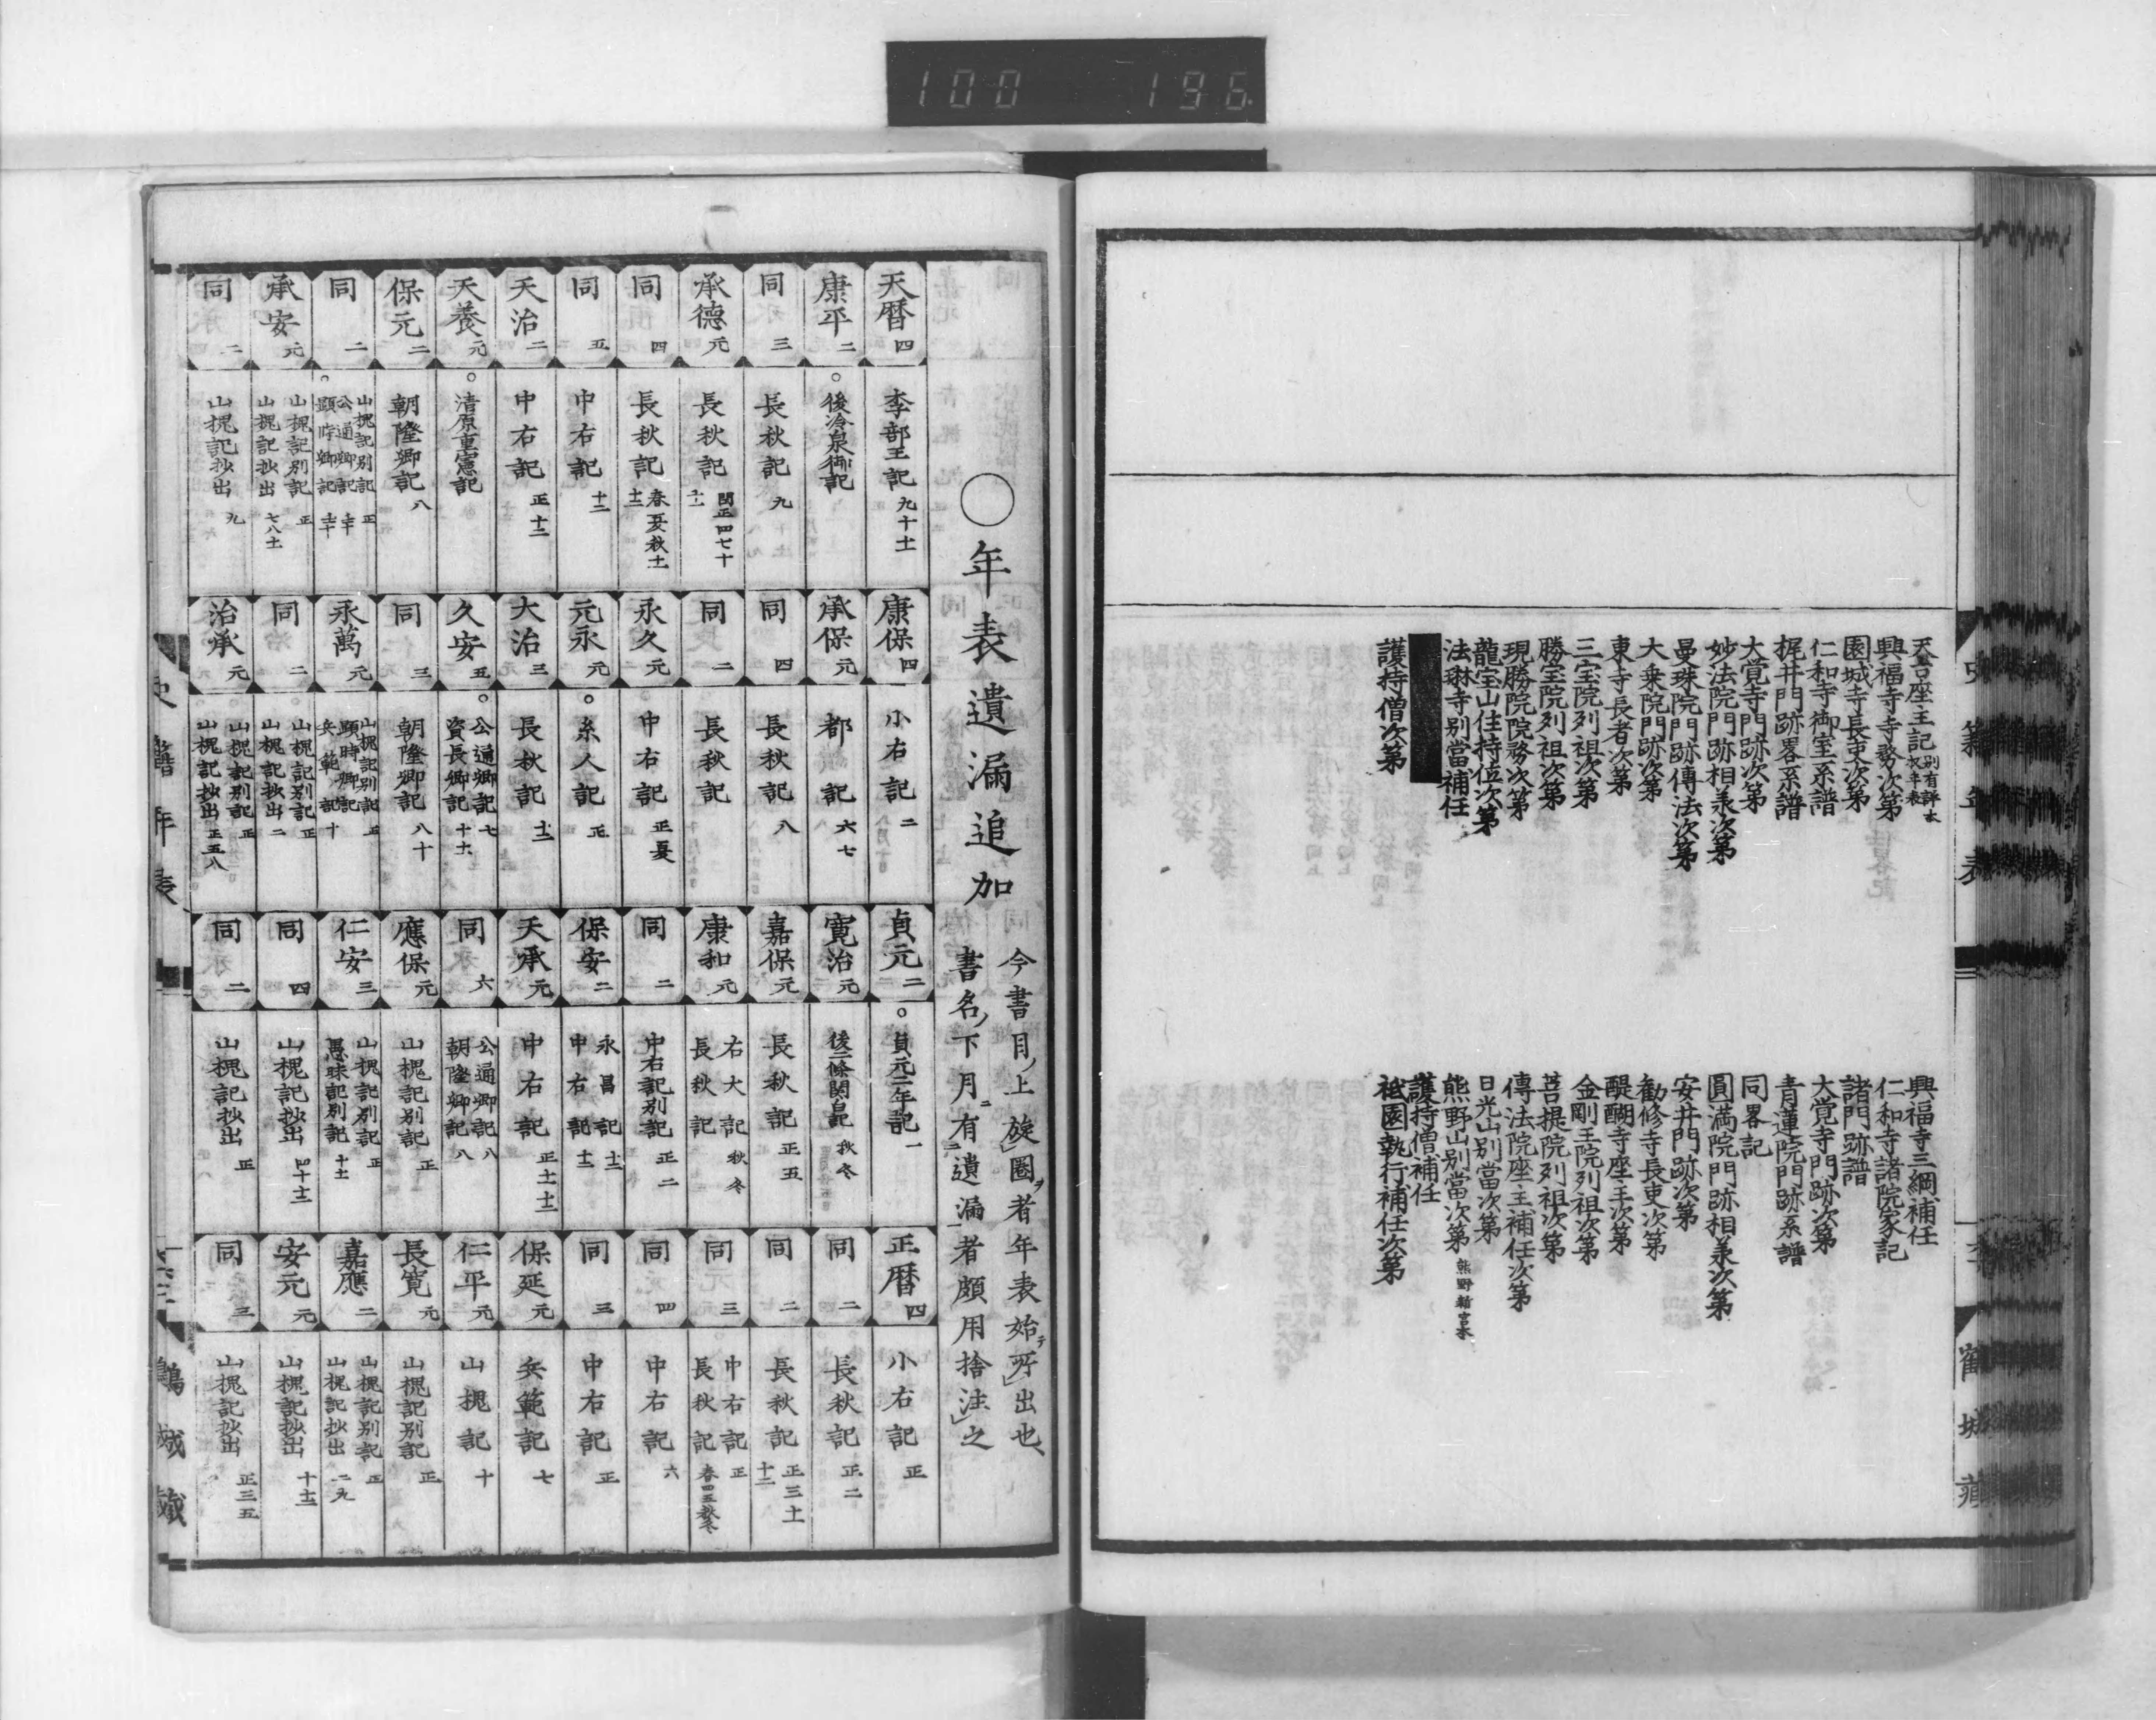 100 196
天台座主記 別有評本 収年表
興福寺寺務次第
園城寺長吏次第
仁和寺御室系譜
梶井門跡畧系譜
大覚寺門跡次第
妙法院門跡相羕次第
曼珠院門跡傳法次第
大乗院門跡次第
東寺長者次第
三宝院列祖次第
勝宝院列祖次第
現勝院院務次第
龍宝山住持位次第
法琳寺別當補任
護持僧次第
興福寺三綱補任
仁和寺諸院家記
諸門跡譜
大覚寺門跡次第
青蓮院門跡系譜
同畧記
圓満院門跡相羕次第
安井門跡次第
勧修寺長吏次第
醍醐寺座主次第
金剛王院列祖次第
菩提院列祖次第
傳法院座主補任次第
日光山別當次第
熊野山別當次第 熊野新宮本
護持僧補任
祗園執行補任次第
史籍年表
鶴城蔵
○年表遺漏追加
今書目ノ上施圏者年表始テ所出也
書名ノ下月ニ有遺漏者頗用捨注之
天暦四 李部王記 九十十一
康平二 ○後冷泉御記
同三 長秋記 九
承徳元 長秋記 閏正四七十十一
同四 長秋記 春夏秋十一十二
同五 中右記 十二
天治二 中右記 正十二
天養元 ○清原重憲記
保元二 朝隆卿記 八
同二 山槐記別記 正 公通卿記 ○顕時卿記
承安元 山槐記別記 正 山槐記抄出 七八十一
同二 山槐記抄出 九
康保四 小右記 二
承保元 都記 六七
同四 長秋記 八
同二 長秋記
永久元 中右記 正夏
元永元 ○糸人記 正
大治三 長秋記 十二
久安五 ○公通卿記 七 資長卿記
同三 朝隆卿記 八十
永萬元 山槐記別記 正 顕時卿記 兵範記 十
同二 山槐記別記 正 山槐記抄出 二
治承元 山槐記別記 正 山槐記抄出 正五八
貞元二 ○貞元二年記 一
寛治元 後二條関白記 秋冬
嘉保元 長秋記 正五
康和元 右大記 秋冬 長秋記
同二 中右記別記 正二
保安二 永昌記 十二 中右記 十二
天承元 中右記 正十一十二
同六 公通卿記 八 朝隆卿記 八
應保元 山槐記別記 正
仁安三 山槐記別記 正 愚昧記別記 十十一
同四 山槐記抄出 四十十二
同二 山槐記抄出 正
正暦四 小右記 正
同二 長秋記 正二
同二 長秋記 正三十一十二
同三 中右記 正 長秋記
同四 中右記 六
同三 中右記 正
保延元 兵範記 七
仁平元 山槐記 十
長寛元 山槐記別記 正
嘉應二 山槐記別記 正 山槐記抄出 二九
安元元 山槐記抄出 十十二
同三 山槐記抄出 正三五
史籍年表
鶴城蔵